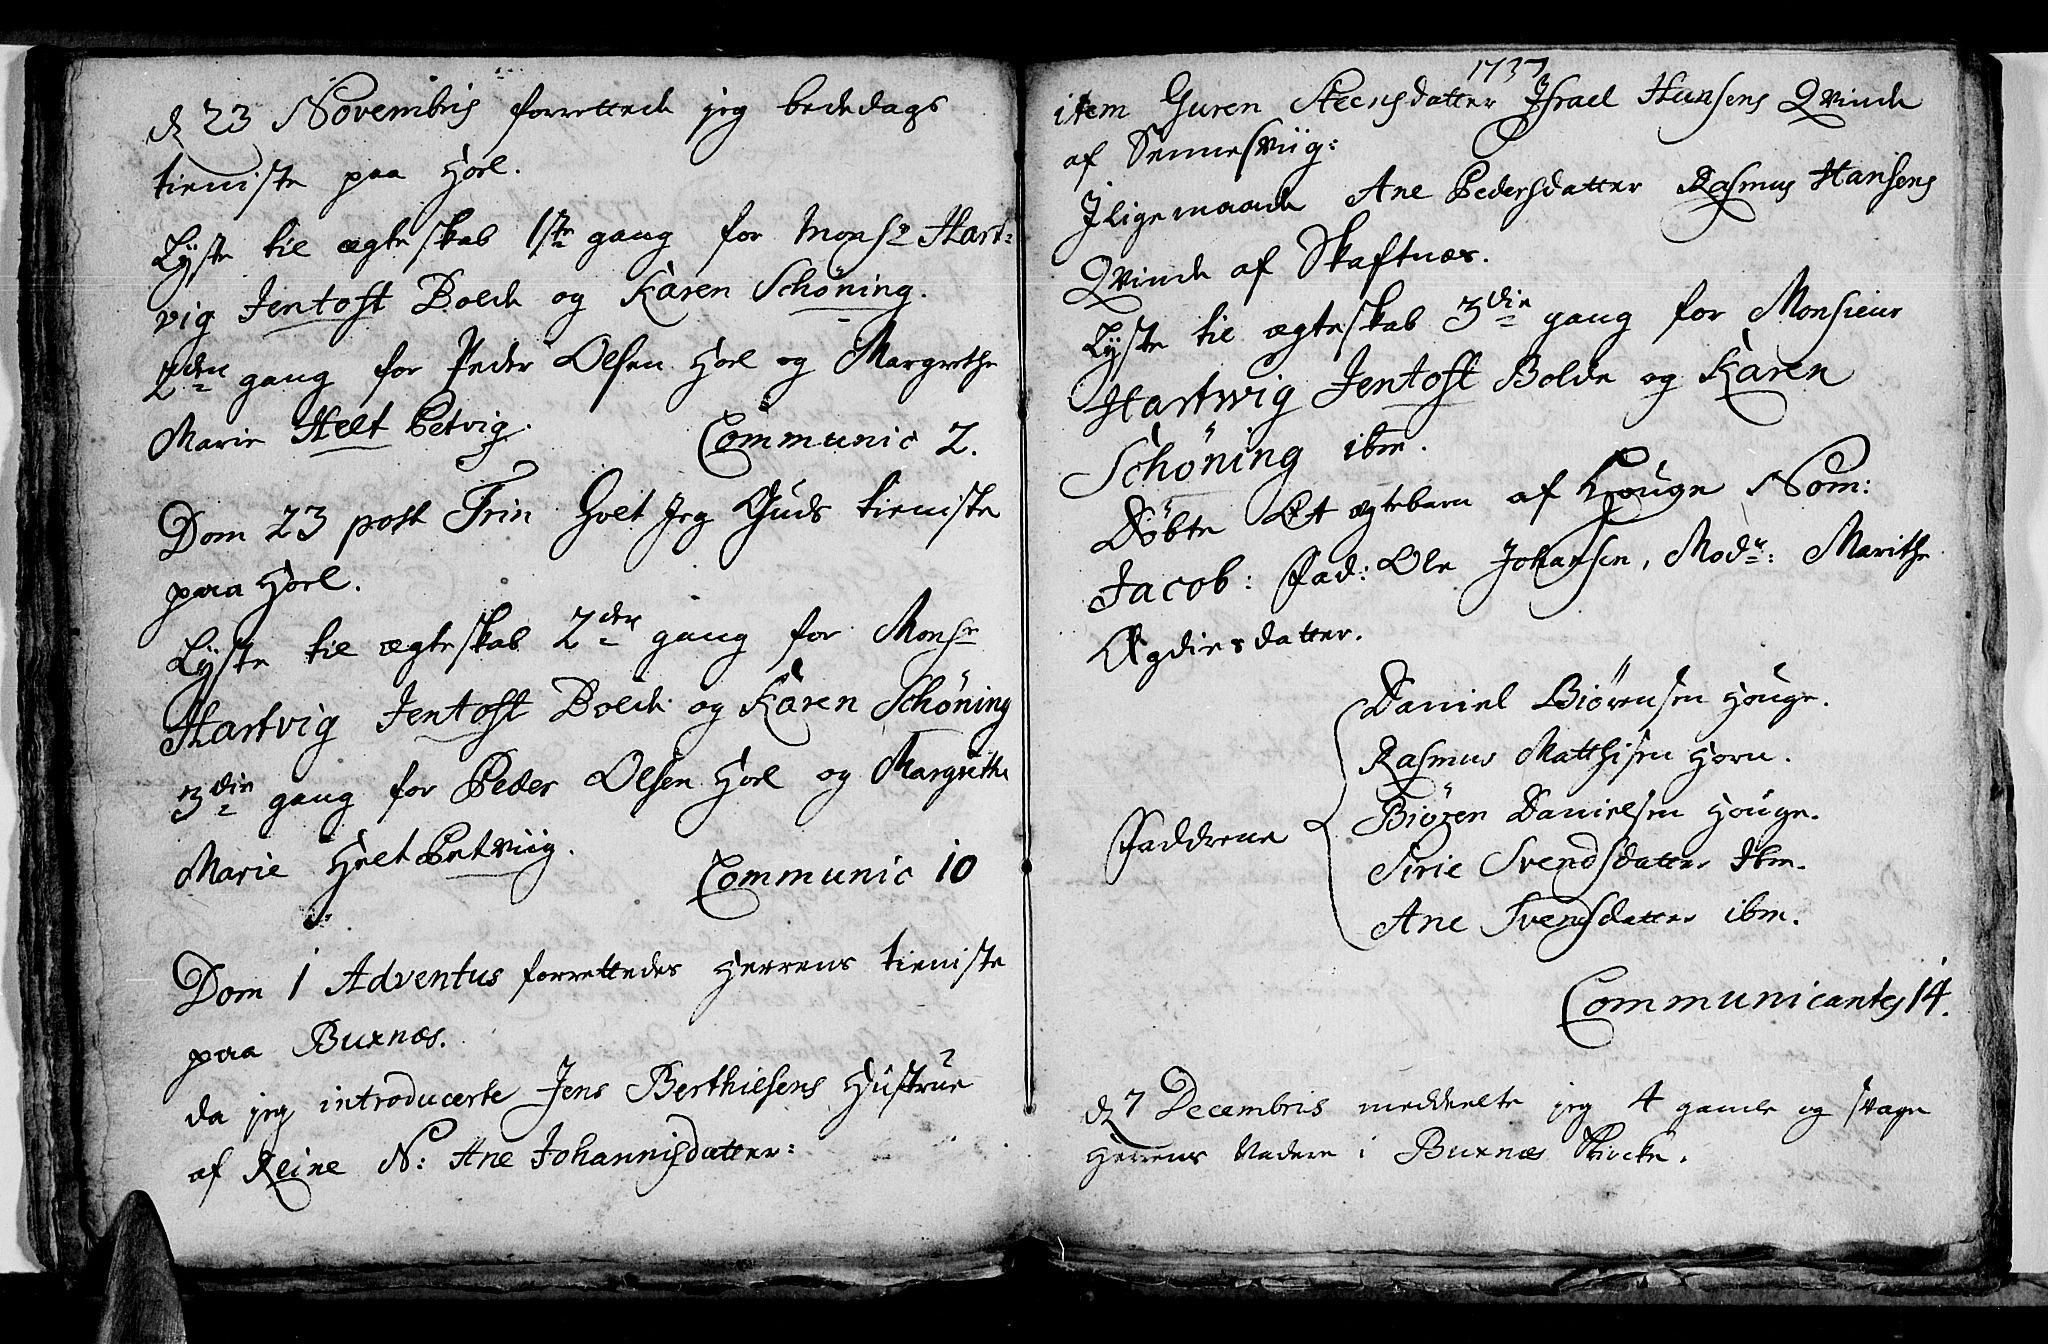 d 23 Novembris forrettede jeg bededags
tieniste paa Hoel.
Lyste til ægteskab 1ste gang for Monsr Hart=
vig Jentoft Bolde og Karen Schöning.
2den gang for Peder Olsen Hoel og Margrethe
Marie Helt Petvig.
Communic 2.
Dom 23 post Trin Holt Jeg Guds tieniste
paa Hoel.
Lyste til ægteskab 2den gang for Monsr
Hartvig Jentoft Bolde og Karen Schöning
3die gang for Peder Olsen Hoel og Margrethe
Marie Helt Petviig.
Communic 10
Dom 1 Adventus forrettedes Herrens tieniste
paa Buxnæs.
da jeg introducerte Jens Berthielsens Hustrue
af Reine N: Ane Johannisdatter:
1737
item Guren Steensdatter Israel Hansens Qvinde
af Sennesviig:
Jligemaade Ane Pedersdatter Rasmus Hansens
Qvinde af Skaftnæs.
Lyste til ægteskab 3die gang for Monsieur
Hartwig Jentoft Bolde og Karen
Schöning ibm.
Döbte Et ægtebarn af Houge Nom:
Jacob: Fad: Ole Johansen, Modr: Marithe
Ogdiersdatter.
Daniel Biörensen Houge.
Rasmus Matthisen Horn.
Fadderne Biören Danielsen Houge.
Sirie Svendsdatter Ibm.
Ane Svensdatter ibm.
Communicantes 14.
d 7 Decembris meddeelte jeg 4 gamle og svage
Herrens Nadere i Buxnæs Kircke.